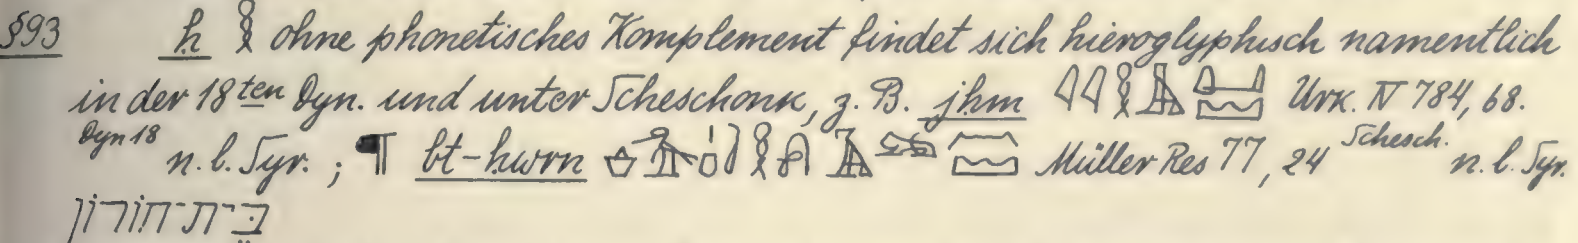 §93 ḥ 𓎛 ohne phonetisches Komplement findet sich hieroglyphisch namentlich
in der 18ten Dyn. und unter Scheschonk, z. B. jḥm Urk. IV 784, 68.
Dyn 18 n. l. Syr. ; ¶ bt-ḥwrn Müller Res 77, 24 Schesch. n. l. Syr.
בֵּית־חוֹרוֹן